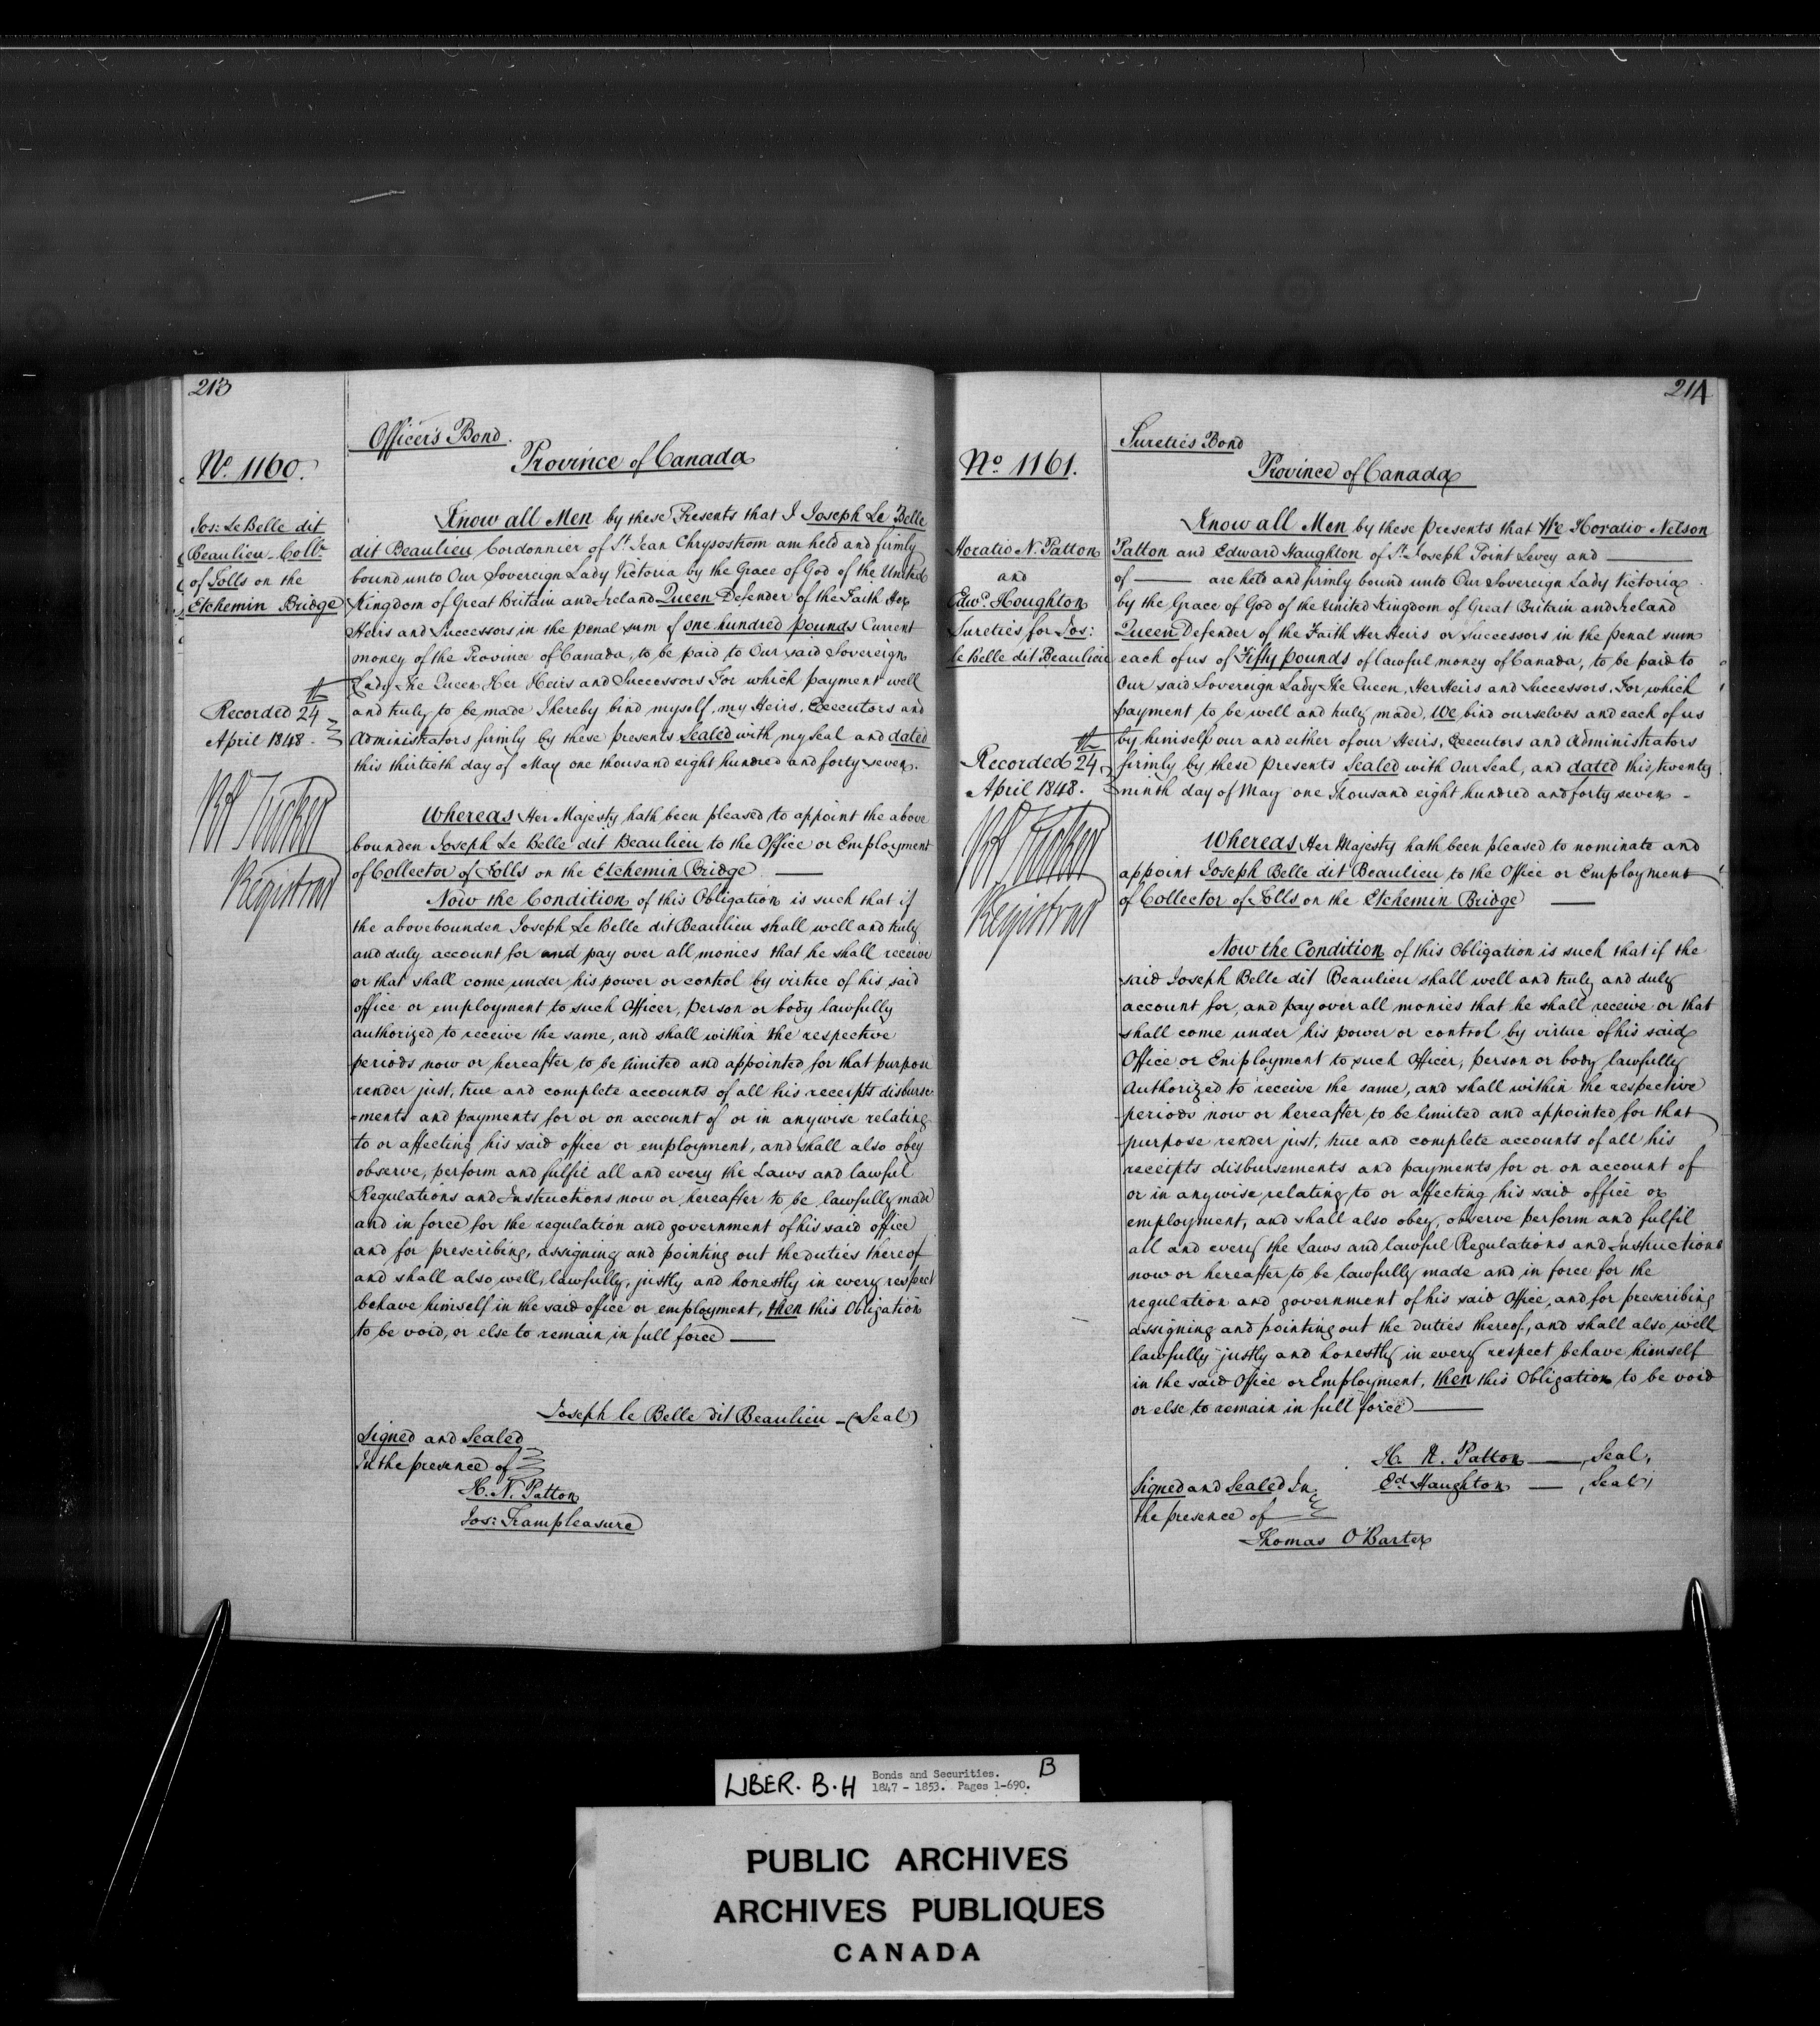 213
Officer's Bond.
No. 1160.
Province of Canada
Jos: Le Belle dit
Beaulieu - Collr
of Tolls on the
Etchemin Bridge
Recorded 24th
April 1848.
Registrar
Know all Men by these Presents that I Joseph Le Belle
dit Beaulieu Cordonnier of St. Jean Chrysostrom am held and firmly
bound unto Our Sovereign Lady Victoria by the Grace of God of the United
Kingdom of Great Britain and Ireland Queen Defender of the Faith Her
Heirs and Successors in the penal sum of one hundred pounds Current
money of the Province of Canada, to be paid to Our said Sovereign
Lady The Queen Her Heirs and Successors For which payment well
and truly to be made I hereby bind myself, my Heirs, Executors and
Administrators firmly by these presents Sealed with my seal and dated
this thirtieth day of May one thousand eight hundred and forty seven.
Whereas Her Majesty hath been pleased to appoint the above
bounden Joseph Le Belle dit Beaulieu to the Office or Employment
of Collector of Tolls on the Etchemin Bridge —
Now the Condition of this Obligation is such that if
the abovebounden Joseph Le Belle dit Beaulieu shall well and truly
and duly account for and pay over all monies that he shall receive
or that shall come under his power or control by virtue of his said
office or employment to such Officer, person or body lawfully
authorized to receive the same, and shall within the respective
periods now or hereafter to be limited and appointed for that purpose
render just, true and complete accounts of all his receipts disburse-
=ments and payments for or on account of or in anywise relating
to or affecting his said office or employment, and shall also obey
observe, perform and fulfil all and every the Laws and lawful
Regulations and Instructions now or hereafter to be lawfully made
and in force for the regulation and government of his said office
and for prescribing, assigning and pointing out the duties thereof
and shall also well, lawfully, justly and honestly in every respect
behave himself in the said office or employment, then this Obligation
to be void, or else to remain in full force —
Joseph le Belle dit Beaulieu - (Seal)
Signed and Sealed
In the presence of
H. N. Patton
Jos: Trampleasure
214
Sureties Bond
No. 1161.
Province of Canada
Horatio N. Patton
and
Edwd. Houghton
Sureties for Jos:
le Belle dit Beaulieu
Recorded 24th
April 1848.
Registrar
Know all Men by these Presents that We Horatio Nelson
Patton and Edward Haughton of St. Joseph Point Levey and —
of — are held and firmly bound unto Our Sovereign Lady Victoria
by the Grace of God of the United Kingdom of Great Britain and Ireland
Queen Defender of the Faith Her Heirs or Successors in the penal sum
each of us of Fifty pounds of lawful money of Canada, to be paid to
Our said Sovereign Lady The Queen, Her Heirs and Successors, For which
payment to be well and truly made, We bind ourselves and each of us
by himself our and either of our Heirs, Executors and Administrators
firmly by these presents Sealed with Our Seal, and dated this twenty
ninth day of May one Thousand eight hundred and forty seven -
Whereas Her Majesty hath been pleased to nominate and
appoint Joseph Belle dit Beaulieu to the Office or Employment
of Collector of Tolls on the Etchemin Bridge —
Now the Condition of this Obligation is such that if the
said Joseph Belle dit Beaulieu shall well and truly and duly
account for, and pay over all monies that he shall receive or that
shall come under his power or control by virtue of his said
Office or Employment to such Officer, person or body lawfully
Authorized to receive the same, and shall within the respective
periods now or hereafter to be limited and appointed for that
purpose render just, true and complete accounts of all his
receipts disbursements and payments for or on account of
or in anywise relating to or affecting his said office or
employment, and shall also obey, observe perform and fulfil
all and every the Laws and lawful Regulations and Instructions
now or hereafter to be lawfully made and in force for the
regulation and government of his said Office, and for prescribing
assigning and pointing out the duties thereof, and shall also well
lawfully justly and honestly in every respect behave himself
in the said Office or Employment, then this Obligation to be void
or else to remain in full force —
H. N. Patton — , Seal,
Signed and Sealed In
Ed Haughton — , Seal,
the presence of
Thomas O'Barter
LIBER. B.H
Bonds and Securities. B
1847 - 1853. Pages 1-690.
PUBLIC ARCHIVES
ARCHIVES PUBLIQUES
CANADA